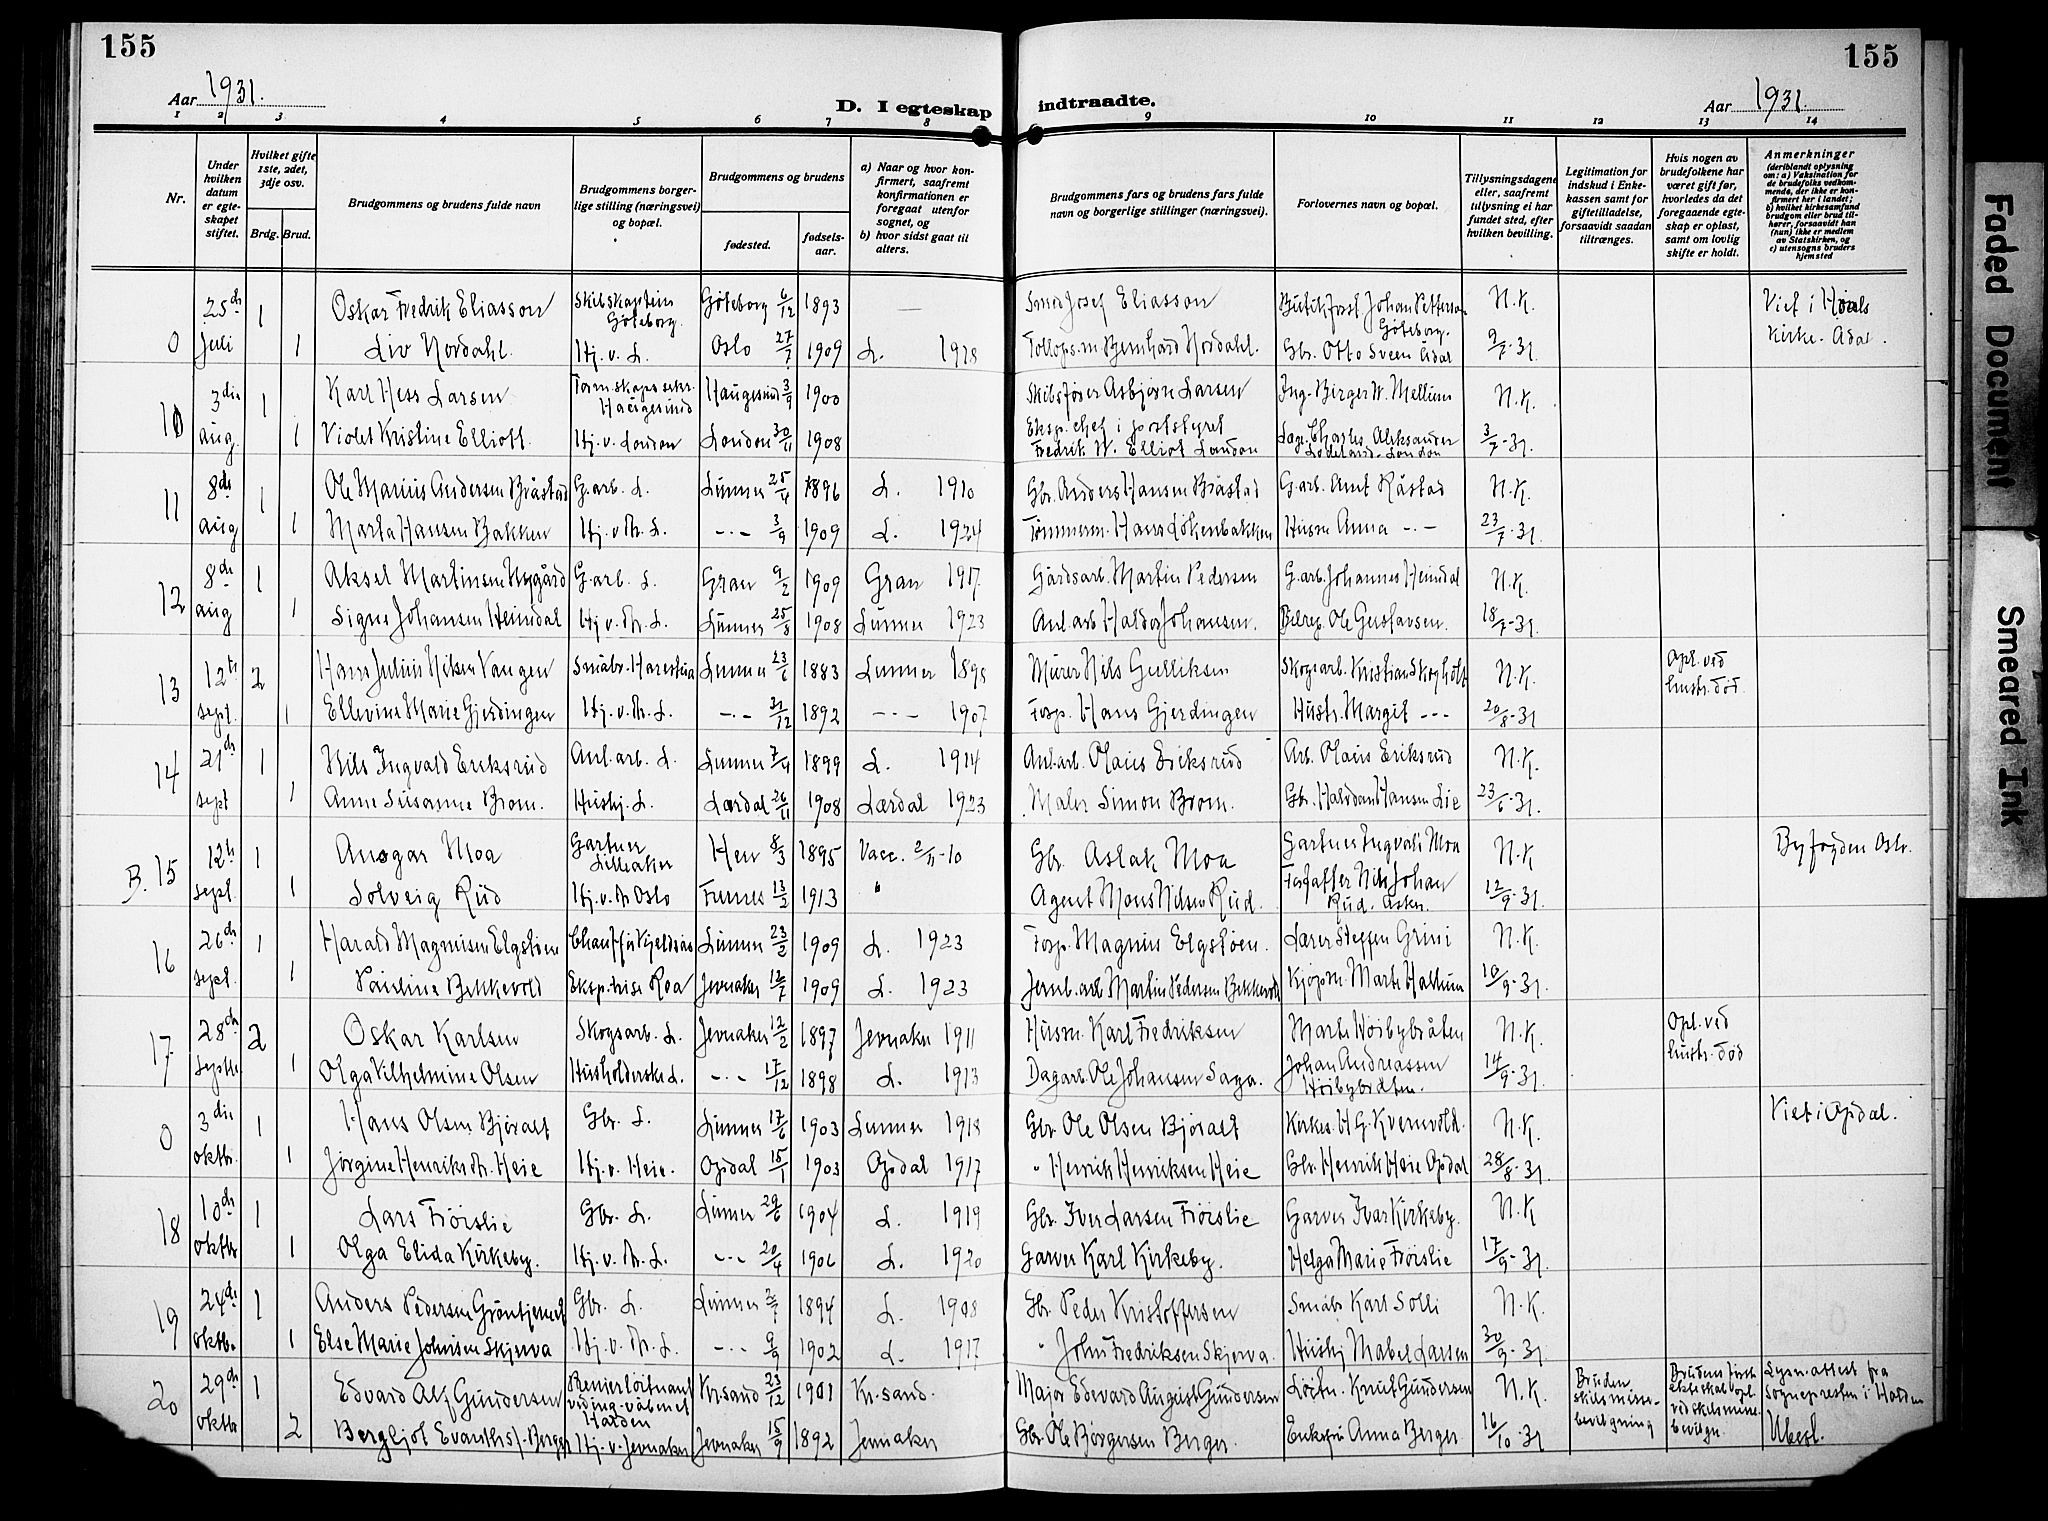 155
155
Aar 1931.
D. I egteskap indtraadte.
Aar 1931.
1 2 3 4 5 6 7 8 9 10 11 12 13 14
Nr.
Under hvilken datum er egteskapet stiftet.
Hvilket gifte 1ste, 2det, 3dje osv.
Brdg. Brud.
Brudgommens og brudens fulde navn
Brudgommens borgerlige stilling (næringsvei) og bopæl.
Brudgommens og brudens
fødested.
fødselsaar.
a) Naar og hvor konfirmert, saafremt konfirmationen er foregaat utenfor sognet, og
b) hvor sidst gaat til alters.
Brudgommens fars og brudens fars fulde navn og borgerlige stillinger (næringsvei).
Forlovernes navn og bopæl.
Tillysningsdagene eller, saafremt tillysning ei har fundet sted, efter hvilken bevilling.
Legitimation for indskud i Enkekassen samt for giftetilladelse, forsaavidt saadan tiltrænges.
Hvis nogen av brudefolkene har været gift før, hvorledes da det foregaaende egteskap er opløst, samt om lovlig skifte er holdt.
Anmerkninger
(deriblandt oplysning om: a) Vaksination for de brudefolks vedkommende, der ikke er konfirmert her i landet; b) hvilket kirkesamfund brudgom eller brud tilhører, forsaavidt han (hun) ikke er medlem av Statskirken, og c) utensogns bruders hjemsted
0 25de juli 1 Oskar Fredrik Eliasson Skibskaptein Göteborg. Göteborg 6/12 1893 — Smed Josef Eliasson Butikforst Johan Petterson Göteborg. N.K. Viet i Hval kirke. Ådal.
1 Liv Nordahl. Hj. v. L. Oslo 27/7 1909 L. 1928 Tollops.m Bernhard Nordahl. Gbr. Otto Sveen Ådal 9/7-31.
10 3die aug. 1 Karl Hess Larsen Form.skaps sekr. Haugesund Haugesund 3/9 1900 Skibsfører Asbjørn Larsen Ing. Birger W. Mellum N.K.
1 Violet Kristine Elliott. Hj. v. London London 30/11 1908 Eksp. chef i poststyret Fredrik W. Elliot London Charles Aleksander London 3/7-31.
11 8de aug 1 Ole Marius Andersen Bråstad G.arb. L. Lunner 25/4 1896 L. 1910 Gbr. Anders Hansen Bråstad G.arb. Amt Råstad N.K.
1 Marta Hansen Bakken Hj. v. M. L. -.- 3/9 1909 L. 1924 Tømmerm. Hans Løkenbakken Husm Anna -.- 23/7-31.
12 8de aug 1 Aksel Martinsen Nygård G.arb. L. Gran 9/2 1909 Gran 1917 Gårdsarb. Martin Pedersen G.arb. Johannes Heimdal N.K.
1 Signe Johansen Heimdal Hj. v. M. L. Lunner 25/8 1908 Lunner 1923 Anl. arb Haldor Johansen. Bilrep. Ole Gustavsen. 18/7-31.
13 12te sept. 2 Hans Julius Nilsen Vangen Småbr. Harestua Lunner 23/6 1883 Lunner 1898 Murer Nils Gulliksen Skogsarb. Kristian Skogholt N.K. Opl. ved hustr. død.
1 Ellevine Marie Gjerdingen Hj. v. M. L. -.- 31/12 1892 -.- 1907 Forp. Hans Gjerdingen Hustr. Margit --- 20/8-31.
14 21de sept 1 Nils Ingvald Eriksrud Anl.arb. L. Lunner 7/4 1899 L. 1914 Anl.arb. Olaus Eriksrud Arb. Olaus Eriksrud N.K.
1 Anne Susanne Brom. Hushj. L. Lærdal 26/11 1908 Lærdal 1923 Maler Simon Brom. Gbr. Halvdan Hansen Lie 23/6-31.
B. 15 12te sept. 1 Ansgar Moa Gartner Lilleaker Hen 8/3 1895 Vacc. 2/11-10 Gbr. Aslak Moa Gartner Ingvald Moa N.K Byfogden Oslo.
1 Solveig Rud Hj. v. M Oslo Furnes 13/2 1913 " Agent Mons Nilsen Rud. Forfatter Nils Johan Rud. Asker. 12/9-31.
16 26de sept. 1 Harald Magnussen Elgstøen Chauffør Kjeldsås Lunner 23/2 1909 L. 1923 Forp. Magnus Elgstøen. Lærer Steffen Grini N.K.
1 Pauline Bekkevold Eksp.trise Roa Jevnaker 12/7 1909 L. 1923 Jernb. arb Martin Pedersen Bekkevold Kjøpm. Marte Hallum 10/9-31.
17 28de septbr 2 Oskar Karlsen Skogsarb. L. Jevnaker 12/2 1897 Jevnaker 1911 Husm. Karl Fredriksen Marte Høibybråten N.K. Opl. ved hustr. død
1 Olga Vilhelmine Olsen Husholderske L. -.- 17/12 1898 L. 1913 Dagarb. Ole Johansen Saga. Johan Andreassen Høibybråten. 14/9-31.
0 3die oktbr. 1 Hans Olsen Bjøralt Gbr. L. Lunner 17/6 1903 Lunner 1918 Gbr. Ole Olsen Bjøralt Kirkes. H G. Kvernvold. N.K. Viet i Opdal.
1 Jørgine Henriksdtr. Heie Hj. v. Heie. Opdal 15/1 1903 Opdal 1917 " Henrik Henriksen Heie Gbr. Henrik Heie Opdal 28/8-31.
18 10de oktbr 1 Lars Frøislie Gbr. L. Lunner 29/6 1904 L. 1919 Gbr. Iver Larsen Frøislie Garver Ivar Kirkeby. N.K
1 Olga Elida Kirkeby. Hj. v. M. L. -.- 20/4 1906 L. 1920 Garver Karl Kirkeby. Helga Marie Frøislie 17/9-31.
19 24de oktbr. 1 Anders Pedersen Grøntjernet Gbr. L. Lunner 1894 L. 1908 Gbr. Peder Kristoffersen Småbr Karl Solli N.K.
1 Else Marie Johnsen Skjerva Hj. v. M. L. -.- 9/9 1902 L. 1917 " John Fredriksen Skjerva. Hushj Mabel Larsen 30/9-31.
20 29de oktbr 1 Edvard Alf Gundersen Premierløitnant ved ing.våbnet Halden Kr.sand 23/12 1901 Kr.sand. Major Edvard August Gundersen Løitn. Knut Gundersen N.K. Bruden skilsmisse-bevilgning Brudens første ekteskab opl. ved skilsmisse bevilgn. Lysn.attest fra Sognepresten i Halden
2 Bergljot Evanthis f. Berger Hj. v. Jevnaker Jevnaker 15/9 1892 Jevnaker Gbr. Ole Børgersen Berger. Enkefru Anna Berger 16/10-31
Faded Document
Smeared Ink